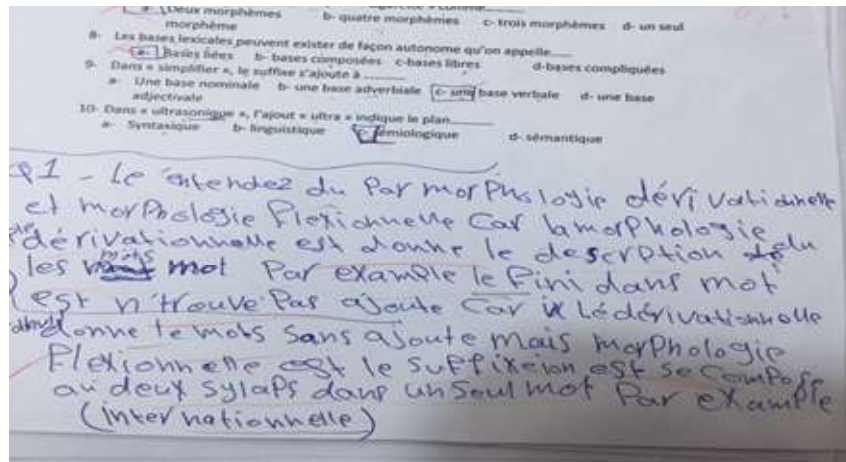 Deux morphèmes b- quatre morphèmes c- trois morphèmes d- un seul
morphème
8- Les bases lexicales peuvent exister de façon autonome qu'on appelle......
a- Bases liées b- bases composées c-bases libres d-bases compliquées
9- Dans « simplifier », le suffixe s'ajoute à ..........
a- Une base nominale b- une base adverbiale c- une base verbale d- une base
adjectivale
10- Dans « ultrasonique », l'ajout « ultra » indique le plan..........
a- Syntaxique b- linguistique c- sémiologique d- sémantique
1 - Le entendez du Par morphologie dérivationnelle
et morphologie Flexionnelle Car la morphologie
dérivationnelle est donne le descrption du
les mot Par example le Fini dans mot
est n'trouve Pas ajoute Car Lédérivationnelle
donne le mots sans ajoute mais morphologie
Flexionnelle est le suffixeion est se compose
au deux sylaps dans un seul mot Par example
(internationnelle)